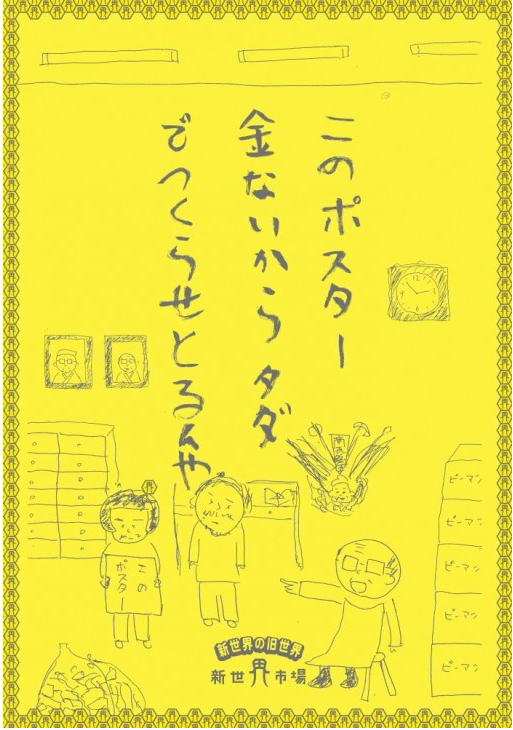 このポスター
金ないからタダ
でつくらせとるんや
この
ポスター
ピーマン
ピーマン
ピーマン
ピーマン
ピーマン
新世界の旧世界
新世界市場